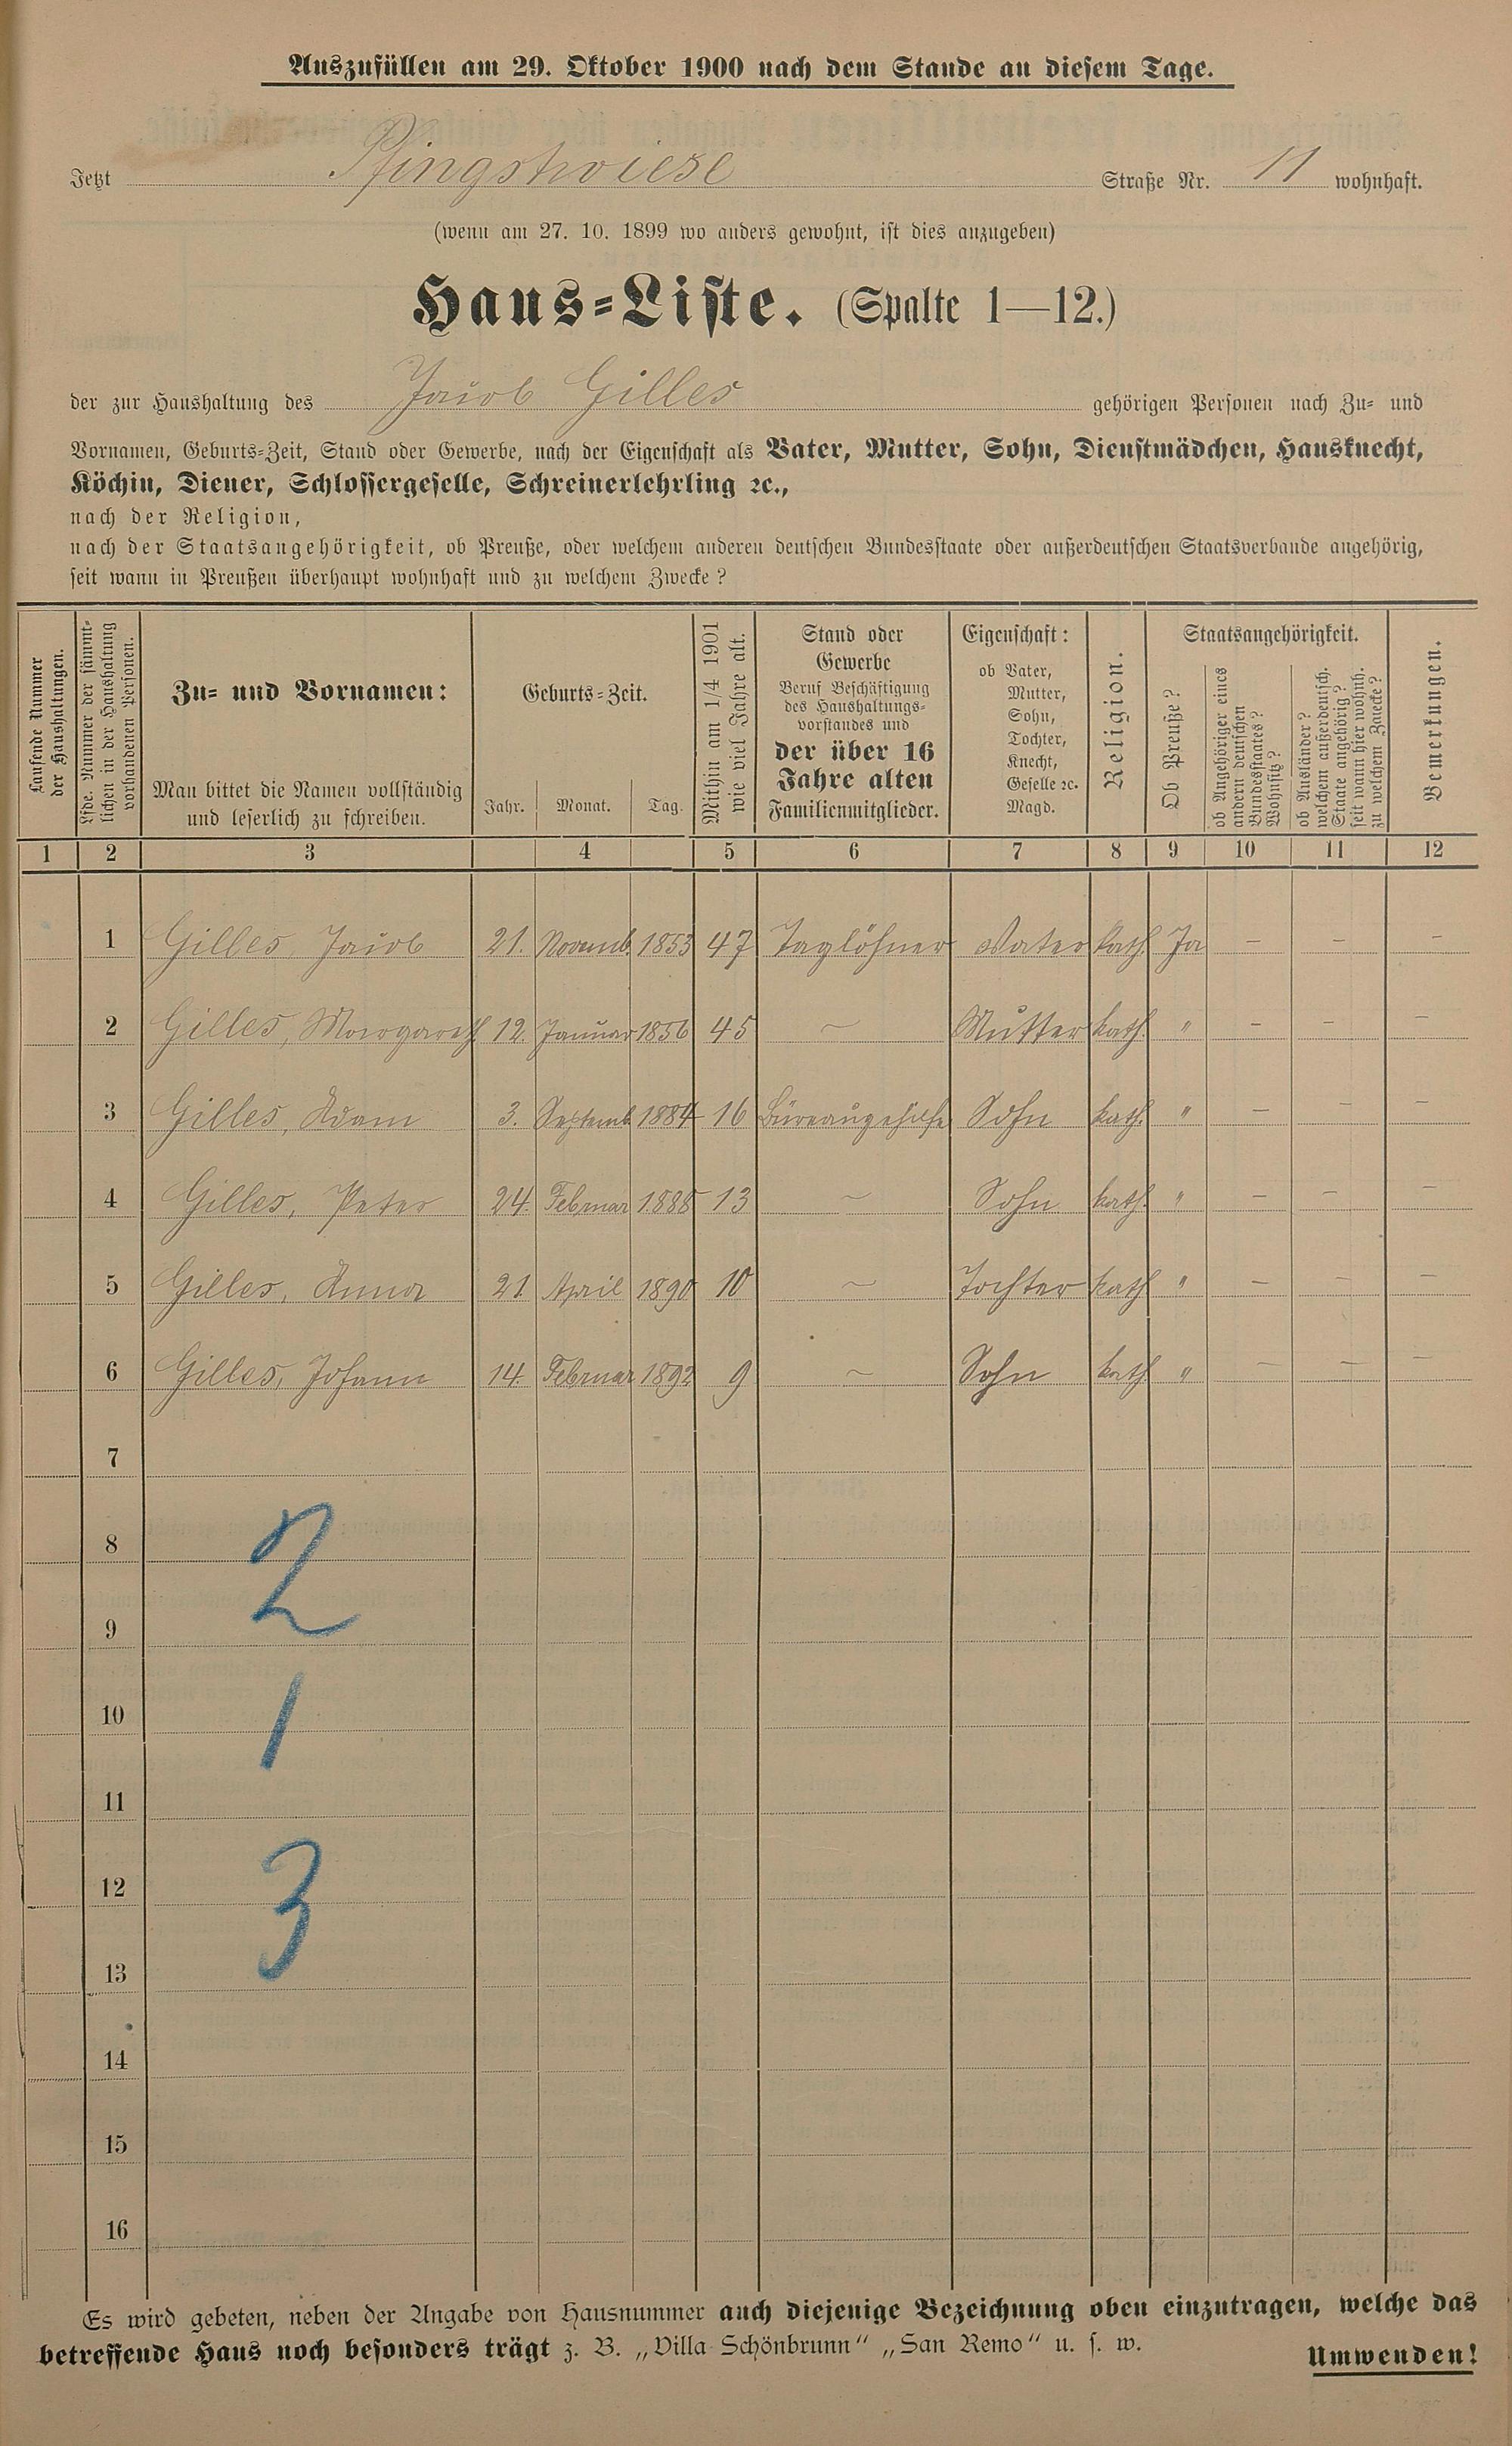 Auszufüllen am 29. Oktober 1900 nach dem Stande an diesem Tage.
Jetzt Pfingstwiese Straße Nr. 11 wohnhaft.
(wenn am 27. 10. 1899 wo anders gewohnt, ist dies anzugeben)
Haus-Liste. (Spalte 1—12.)
der zur Haushaltung des Jacob Gilles gehörigen Personen nach Zu- und
Vornamen, Geburts-Zeit, Stand oder Gewerbe, nach der Eigenschaft als Vater, Mutter, Sohn, Dienstmädchen, Hausknecht,
Köchin, Diener, Schlossergeselle, Schreinerlehrling ꝛc.,
nach der Religion,
nach der Staatsangehörigkeit, ob Preuße, oder welchem anderen deutschen Bundesstaate oder außerdeutschen Staatsverbande angehörig,
seit wann in Preußen überhaupt wohnhaft und zu welchem Zwecke?
Laufende Nummer
der Haushaltungen.
Lfde. Nummer der sämmt-
lichen in der Haushaltung
vorhandenen Personen.
Zu- und Vornamen:
Man bittet die Namen vollständig
und leserlich zu schreiben.
Geburts-Zeit.
Jahr. Monat. Tag.
Mithin am 1/4 1901
wie viel Jahre alt.
Stand oder
Gewerbe
Beruf Beschäftigung
des Haushaltungs-
vorstandes und
der über 16
Jahre alten
Familienmitglieder.
Eigenschaft:
ob Vater,
Mutter,
Sohn,
Tochter,
Knecht,
Geselle ꝛc.
Magd.
Religion.
Staatsangehörigkeit.
Ob Preuße?
ob Angehöriger eines
andern deutschen
Bundesstaates?
Wohnsitz?
ob Ausländer?
welchem außerdeutsch.
Staate angehörig?
seit wann hier wohnh.
zu welchem Zwecke?
Bemerkungen.
1 2 3 4 5 6 7 8 9 10 11 12
1 Gilles Jacob 21. Novemb. 1853 47 Taglöhner Vater kath. Ja — — —
2 Gilles, Margareth 12. Januar 1856 45 ~ Mutter kath. " — — —
3 Gilles, Adam 3. Septemb. 1884 16 Büreaugehilfe Sohn kath. " — — —
4 Gilles, Peter 24. Februar 1888 13 ~ Sohn kath. " — — —
5 Gilles, Anna 21 April 1890 10 ~ Tochter kath " — — —
6 Gilles, Johann 14. Februar 1892 9 ~ Sohn kath. " — — —
7
8
2
9
10
1
11
12
3
13
14
15
16
Es wird gebeten, neben der Angabe von Hausnummer auch diejenige Bezeichnung oben einzutragen, welche das
betreffende Haus noch besonders trägt z. B. „Villa Schönbrunn“ „San Remo“ u. s. w.
Umwenden!